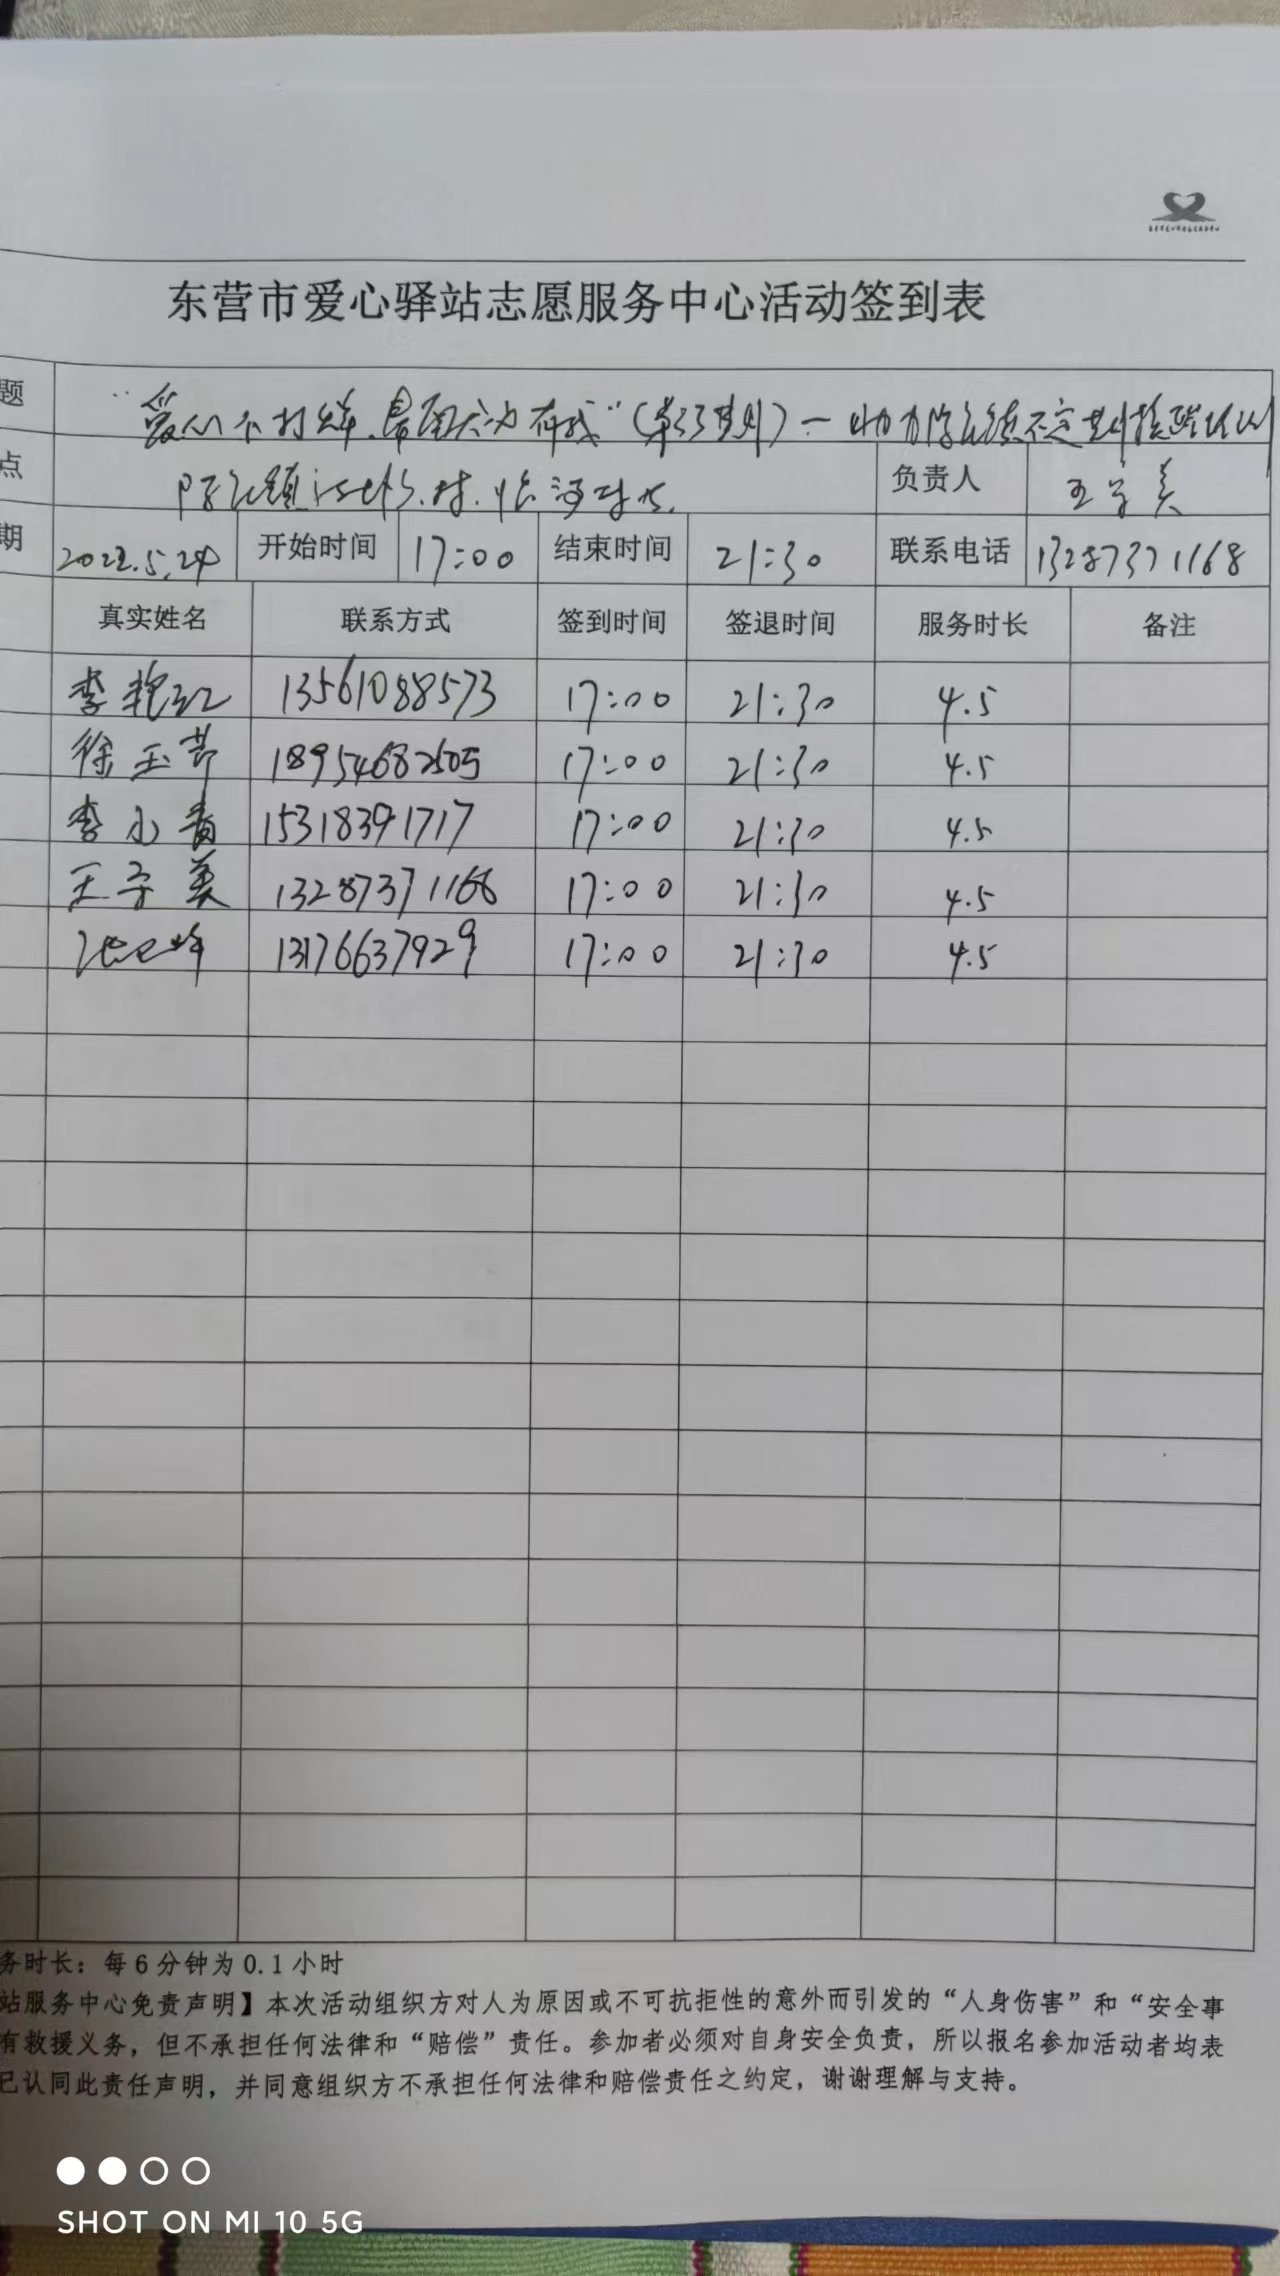 东营市爱心驿站志愿服务中心活动签到表
题 爱心不打烊、最美
点 负责人 王守美
期 2022.5.24 开始时间 17:00 结束时间 21:30 联系电话 13287371168
真实姓名 联系方式 签到时间 签退时间 服务时长 备注
李艳红 13561088573 17:00 21:30 4.5
徐玉芹 18954682505 17:00 21:30 4.5
李小青 15318391717 17:00 21:30 4.5
王守美 13287371168 17:00 21:30 4.5
13176637929 17:00 21:30 4.5
务时长：每6分钟为0.1小时
站服务中心免责声明】本次活动组织方对人为原因或不可抗拒性的意外而引发的“人身伤害”和“安全事
有救援义务，但不承担任何法律和“赔偿”责任。参加者必须对自身安全负责，所以报名参加活动者均表
已认同此责任声明，并同意组织方不承担任何法律和赔偿责任之约定，谢谢理解与支持。
SHOT ON MI 10 5G